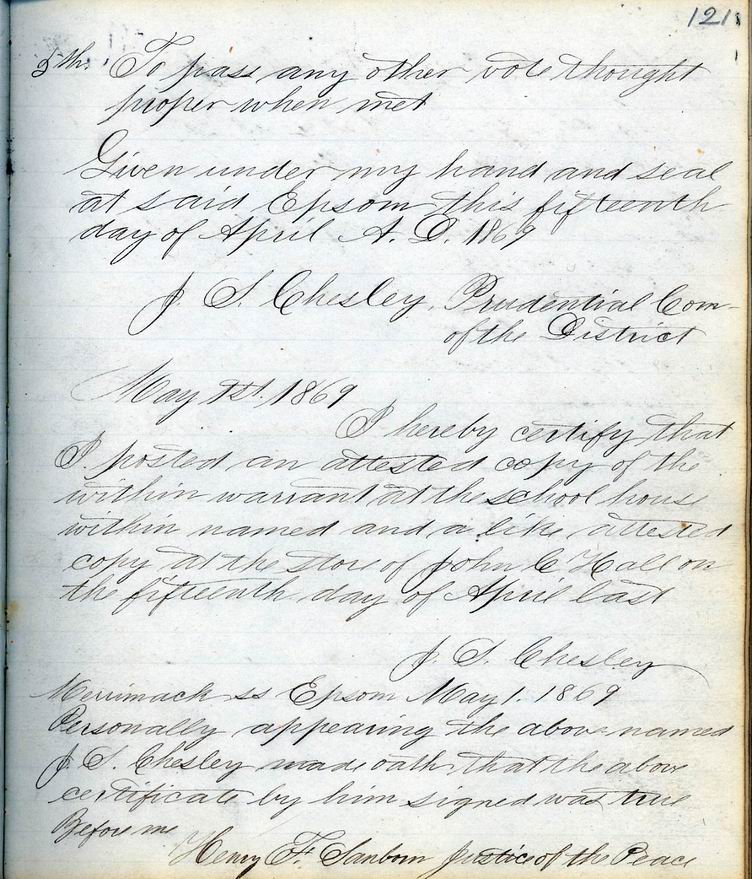 121
5th. To pass any other vote thought
proper when met
Given under my hand and seal
at said Epsom this fifteenth
day of April A. D. 1869
J. S. Chesley, Prudential Com-
of the District
May 1st. 1869
I hereby certify that
I posted an attested copy of the
within warrant at the school house
within named and a like attested
copy at the store of John C Hall on
the fifteenth day of April last
J. S. Chesley
Merrimack ss Epsom May 1. 1869
Personally appearing the above named
J. S. Chesley made oath that the above
certificate by him signed was true
Before me
Henry F. Sanborn Justice of the Peace